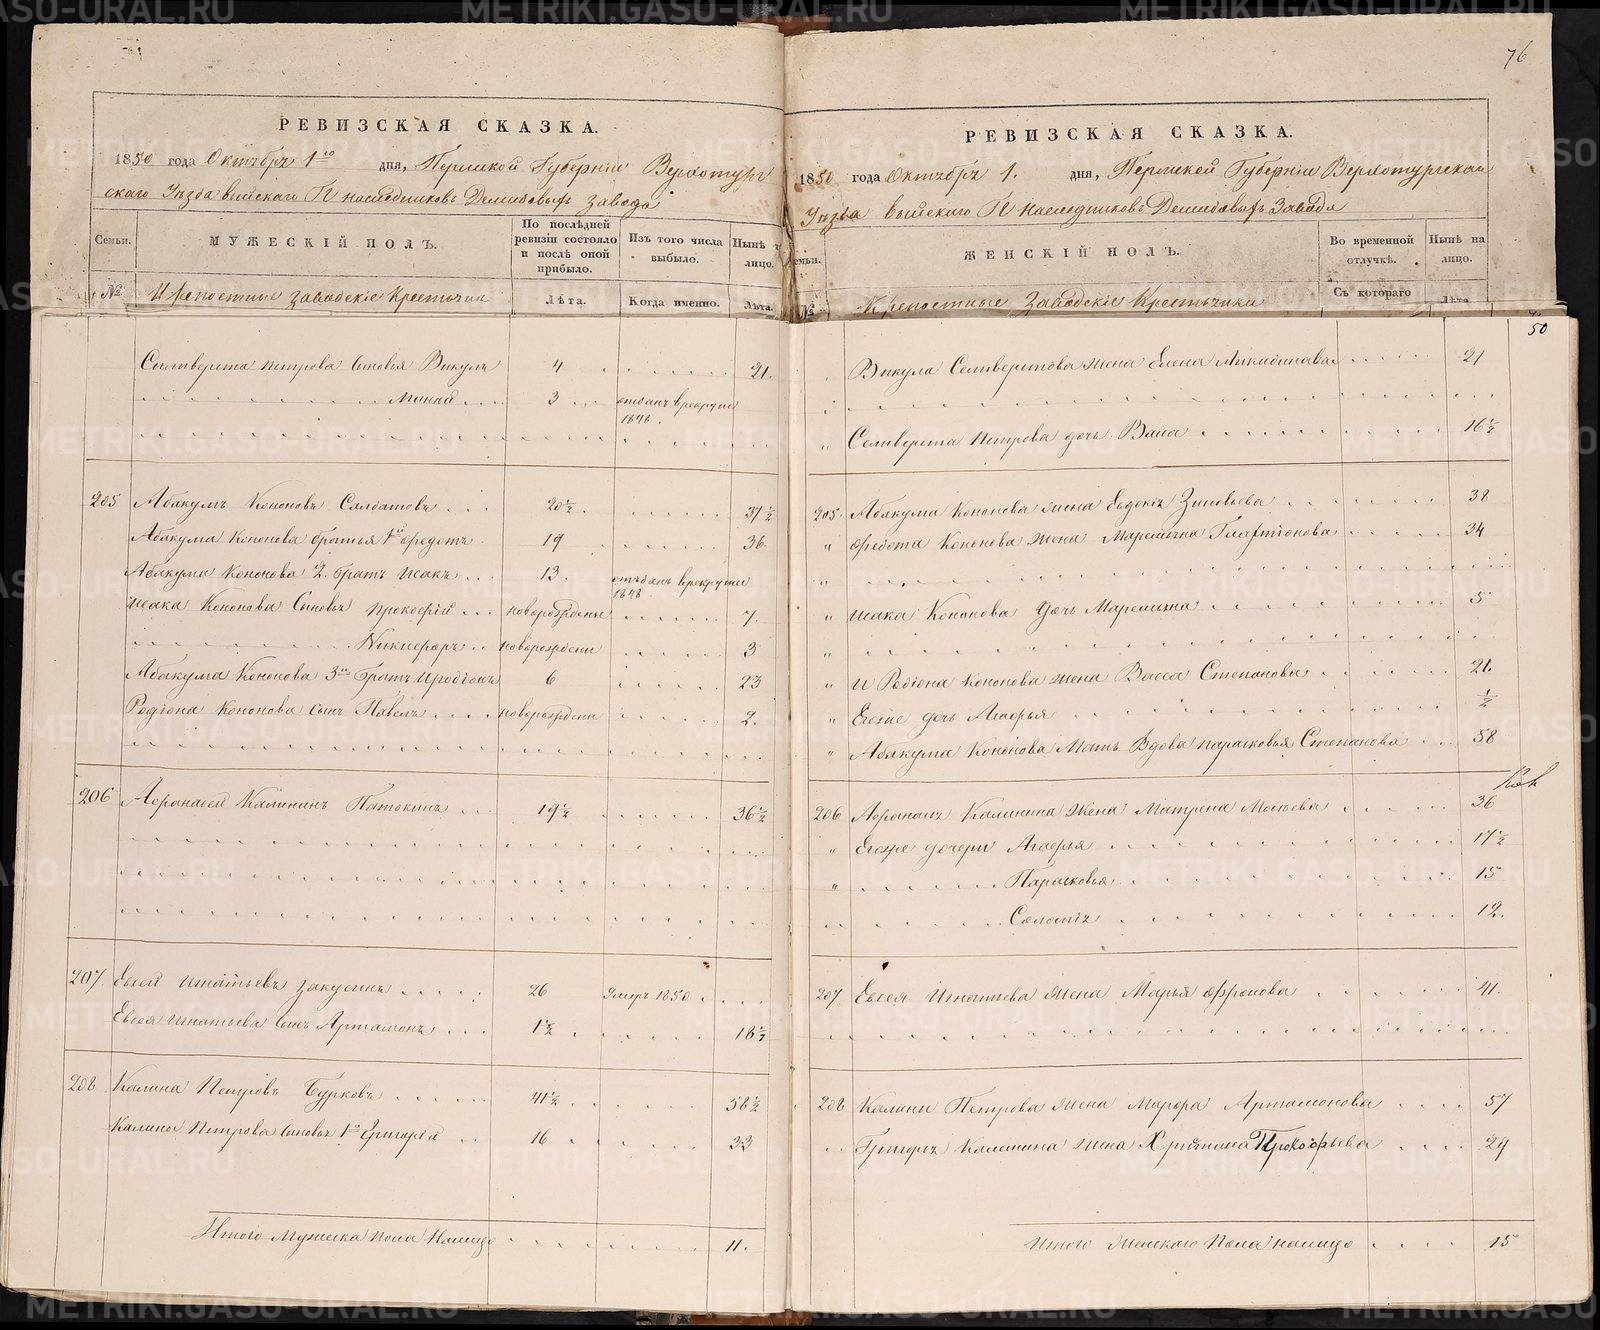 76
РЕВИЗСКАЯ СКАЗКА.
1850 года Октябрь 1го дня, Пермской Губернiи Верхотур
скаго Уезда Выйскаго Гг наследниковъ Демидовыхъ завода
Семьи. МУЖЕСКІЙ ПОЛЪ. По послѣдней ревизіи состояло и послѣ оной прибыло. Изъ того числа выбыло. Нынѣ лицо.
№ Крепостные заводскіе Крестьяне Лѣта. Когда именно. Лѣта.
Силиверста Петрова Сыновья Викулъ 4 21.
Минай 3 отданъ в рекруты 1848.
205 Абакумъ Кононовъ Салдатовъ 20½ 37½
Абакума Кононова братья 1й Федотъ 19 36.
Абакума Кононова 2. братъ Исакъ 13. отъданъ в рекруты 1848.
Исака Кононова Сыновья Прокофій новорожденые 7.
Никифоръ новорождени 3
Абакума Кононова 3й братъ Иродіонъ 6 23
Родіона Кононова сынъ Павелъ новорождени 2.
206 Афанасій Калининъ Пятокинъ 19½ 36½
207 Евсей Игнатьевъ Закусинъ 26 Умеръ 1850
Евсея Игнатьева сынъ Артамонъ 1½ 18½
208 Калина Петровъ Бурковъ 41½ 58½
Калины Петрова Сыновья 1й Григорій 16 33
Итого Мужеска пола Налицо 11.
РЕВИЗСКАЯ СКАЗКА.
1850 года Октябрь 1. дня, Пермской Губернiи Верхотурскаго
Уезда Выйскаго Гг Наследниковъ Демидовыхъ Завода
ЖЕНСКІЙ ПОЛЪ. Во временной отлучкѣ. Нынѣ на лицо.
№ Крепостные Заводскіе Крестьянки Съ котораго Лѣта
50
Викула Селиверстова жена Елена 21
" Селиверста Петрова дочь Васа 16½
205. Абакума Кононова жена Евдокія Зиновьева 38
" Федота Кононова жена Маремьяна Галактіонова 34
" Исака Кононова Дочь Маремьяна 5
" И Родіона Кононова жена Васса Степанова 21.
" Егоже дочь Агафья ½
" Абакума Кононова Мать Вдова Парасковья Степанова 58
206 Афанасья Калинина Жена Матрена Мосеева 36
" Егоже дочери Агафья 17½
" Парасковья 15
Саломія 12.
207 Евсея Игнатьева Жена Марья Афонова 41.
208 Калины Петрова жена Марфа Артамонова 57
Григорья Калинина жена Христина Прокофьева 29
Итого Женскаго Пола налицо 15
METRIKI.GASO-URAL.RU